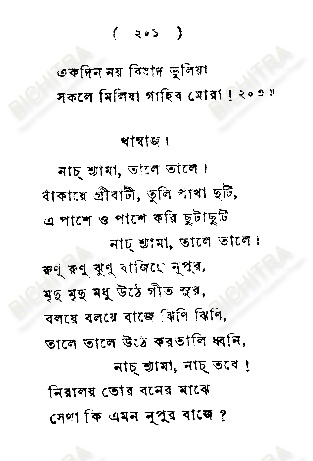 ( ২০১ )
একদিন নয় বিষাদ ভুলিয়া
সকলে মিলিয়া গাহিব মোরা ! ২০৩॥
খাম্বাজ।
নাচ্ শ্যামা, তালে তালে !
বাঁকায়ে গ্রীবাটী, তুলি পাখা দুটি,
এ পাশে ও পাশে করি ছুটাছুটি
নাচ্ শ্যামা, তালে তালে !
রুণু রুণু ঝুণু বাজিছে নূপুর,
মৃদু মৃদু মধু উঠে গীত সুর,
বলয়ে বলয়ে বাজে ঝিণি ঝিণি,
তালে তালে উঠে করতালি ধ্বনি,
নাচ্ শ্যামা, নাচ্ তবে !
নিরালয় তোর বনের মাঝে
সেথা কি এমন নূপুর বাজে ?
BICHITRA